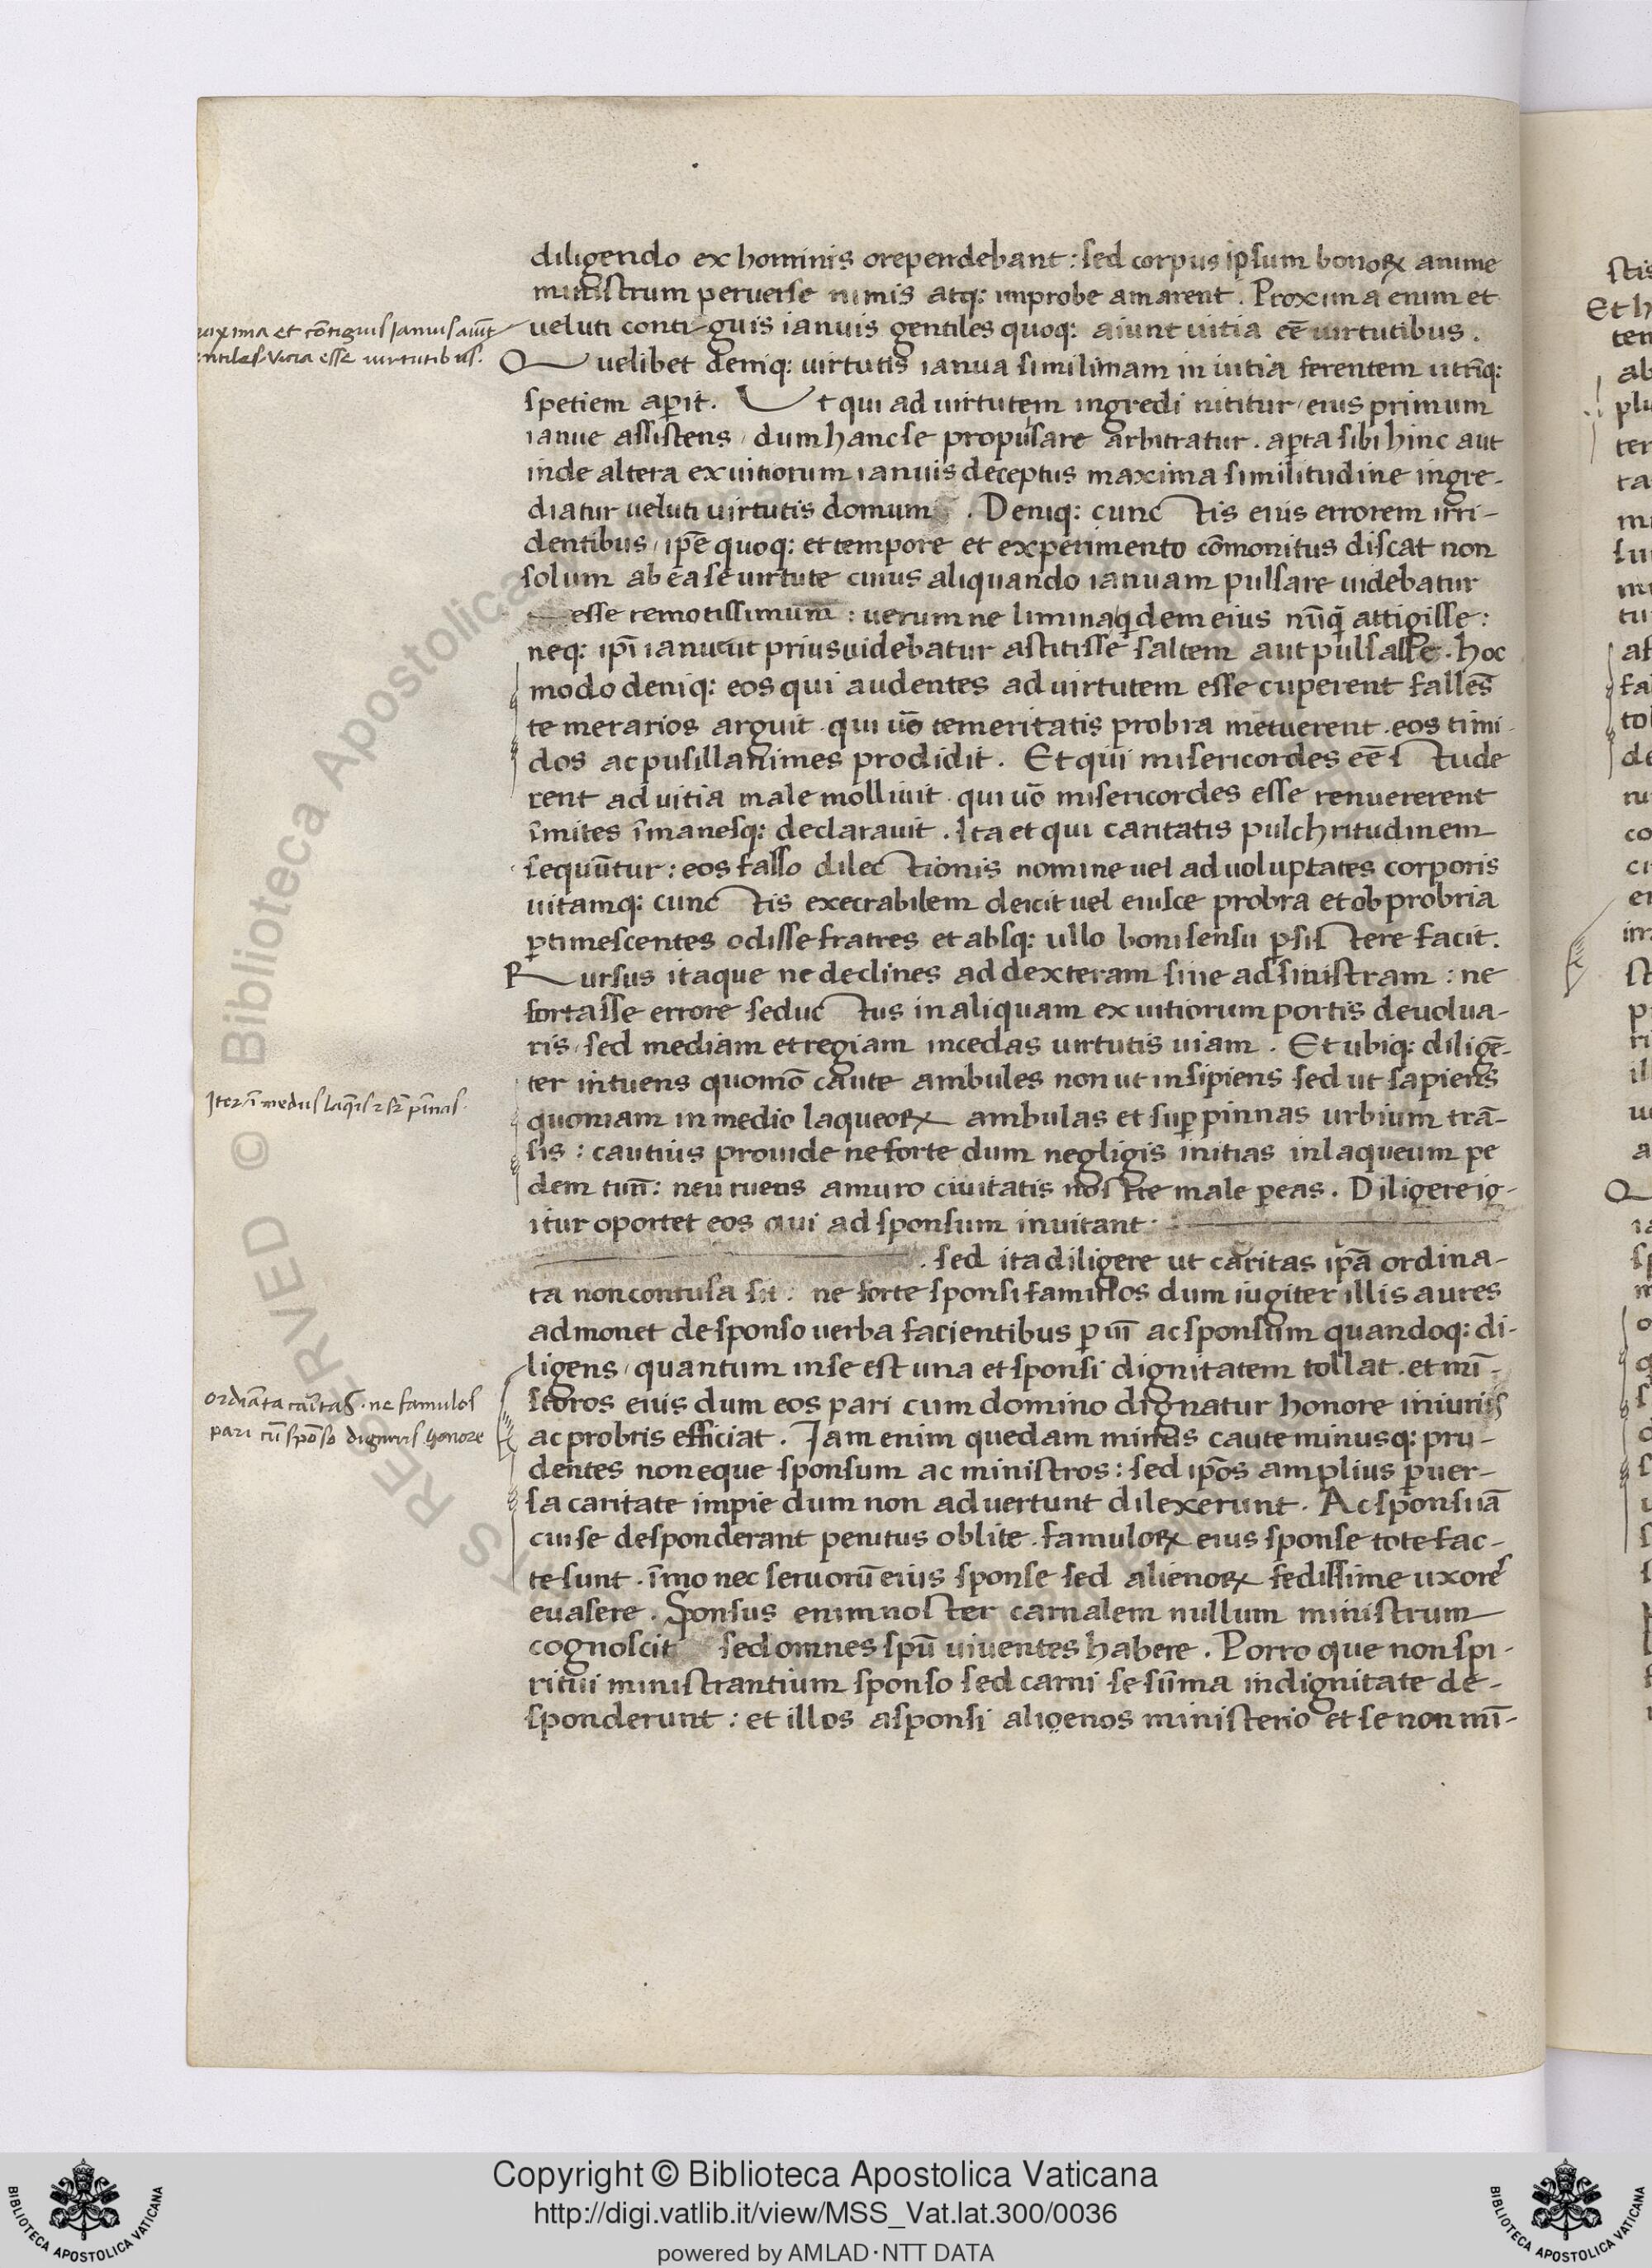 diligendo ex hominis ore pendebant: sed corpus ipsum bonoꝝ anime
ministrum peruerse nimis atq: improbe amarent. Proxima enim et
ueluti contiguis ianuis gentiles quoq: aiunt uitia eē uirtutibus.
Quelibet deniq: uirtutis ianua simillimam in uitia ferentem utrīq:
spetiem aꝑit. Vt qui ad uirtutem ingredi nititur / eius primum
ianue assistens / dum hanc se propulsare arbitratur. aꝑta sibi hinc aut
inde altera ex uitiorum ianuis deceptus maxima similitudine ingre-
diatur ueluti uirtutis domum. Deniq: cunctis eius errorem irri-
dentibus / ip̄e quoq: et tempore et experimento cōmonitus discat non
solum ab ea se uirtute cuius aliquando ianuam pulsare uidebatur
esse remotissimum: uerum ne limina qͥdem eius nūqͣ attigisse:
neq: ip̄i ianue ut prius uidebatur astitisse saltem aut pulsasse. hoc
modo deniq: eos qui audentes ad uirtutem esse cuperent fallēs
temerarios arguit. qui uō temeritatis probra metuerent. eos timi-
dos ac pusillanimes prodidit. Et qui misericordes eē stude
rent ad uitia male molliuit. qui uō misericordes esse renuererent
īmites īmanesq: declarauit. Ita et qui caritatis pulchritudinem
sequūtur: eos falso dilectionis nomine uel ad uoluptates corporis
uitamq: cunctis execrabilem deicit uel eiusce probra et obprobria
ꝑtimescentes odisse fratres et absq: ullo boni sensu ꝑsistere facit.
Rursus itaque ne declines ad dexteram siue ad sinistram: ne
fortasse errore seductus in aliquam ex uitiorum portis deuolua-
ris / sed mediam et regiam incedas uirtutis uiam. Et ubiq: diligē-
ter intuens quomō caute ambules non ut insipiens sed ut sapiens
quoniam in medio laqueoꝝ ambulas et suꝑ pinnas urbium trā-
sis: cautius prouide ne forte dum negligis initias in laqueum pe
dem tuū: neu ruens a muro ciuitatis nostre male ꝑeas. Diligere ig-
itur oportet eos qui ad sponsum inuitant
. sed ita diligere ut caritas ip̄a ordina-
ta non confusa sit: ne forte sponsi famulos dum iugiter illis aures
admonet de sponso uerba facientibus ac sponsum quandoq: di-
ligens / quantum in se est una et sponsi dignitatem tollat. et mī-
stros eius dum eos pari cum domino dignatur honore iniuriis
ac probris efficiat. Iam enim quedam minus caute minusq: pru-
dentes non eque sponsum ac ministros: sed ip̄os amplius ꝑuer-
sa caritate impie dum non aduertunt dilexerunt. Ac sponsi iā
cui se desponderant penitus oblite. famuloꝝ eius sponse tote fac-
te sunt. īmo nec seruorū eius sponse sed alienoꝝ fedissime uxores
euasere. Sponsus enim noster carnalem nullum ministrum
cognoscit sed omnes spū uiuentes habere. Porro que non spi-
ritui ministrantium sponso sed carni se sūma indignitate de-
sponderunt: et illos a sponsi alienos ministerio et se non mī-
oxima et cōtiguis Ianuis aiūt
entiles. Vicia esse uirtutibus.
Iter ī medus laqͣis ⁊ sꝑ pīnas.
ordiāta cāritas. ne famulos
pari cū spōso digneris honore
Copyright © Biblioteca Apostolica Vaticana
http://digi.vatlib.it/view/MSS_Vat.lat.300/0036
powered by AMLAD·NTT DATA
BIBLIOTECA APOSTOLICA VATICANA
BIBLIOTECA APOSTOLICA VATICANA